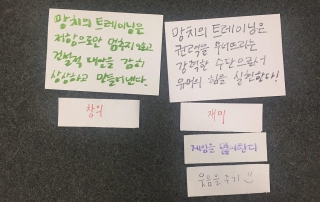 망치의 트레이닝은
저항으로만 멈추지 않고
건설적 대안을 감히
상상하고 만들어낸다.
창의
망치의 트레이닝은
권력을 무너뜨리는
강력한 수단으로서
유머의 힘을 실천한다!
재미
세상을 뒤집는다
웃음을 주기